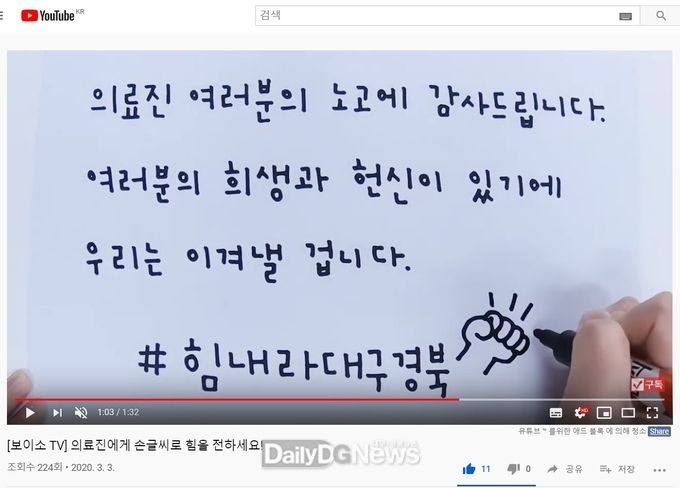 YouTube KR
검색
의료진 여러분의 노고에 감사드립니다.
여러분의 희생과 헌신이 있기에
우리는 이겨낼 겁니다.
#힘내라대구경북
구독
1:03 / 1:32
HD
유튜브™ 를위한 애드 블록 에 의해 청소 Share
[보이소 TV] 의료진에게 손글씨로 힘을 전하세요!
DailyDGNews
조회수 224회 • 2020. 3. 3.
11 0 공유 저장